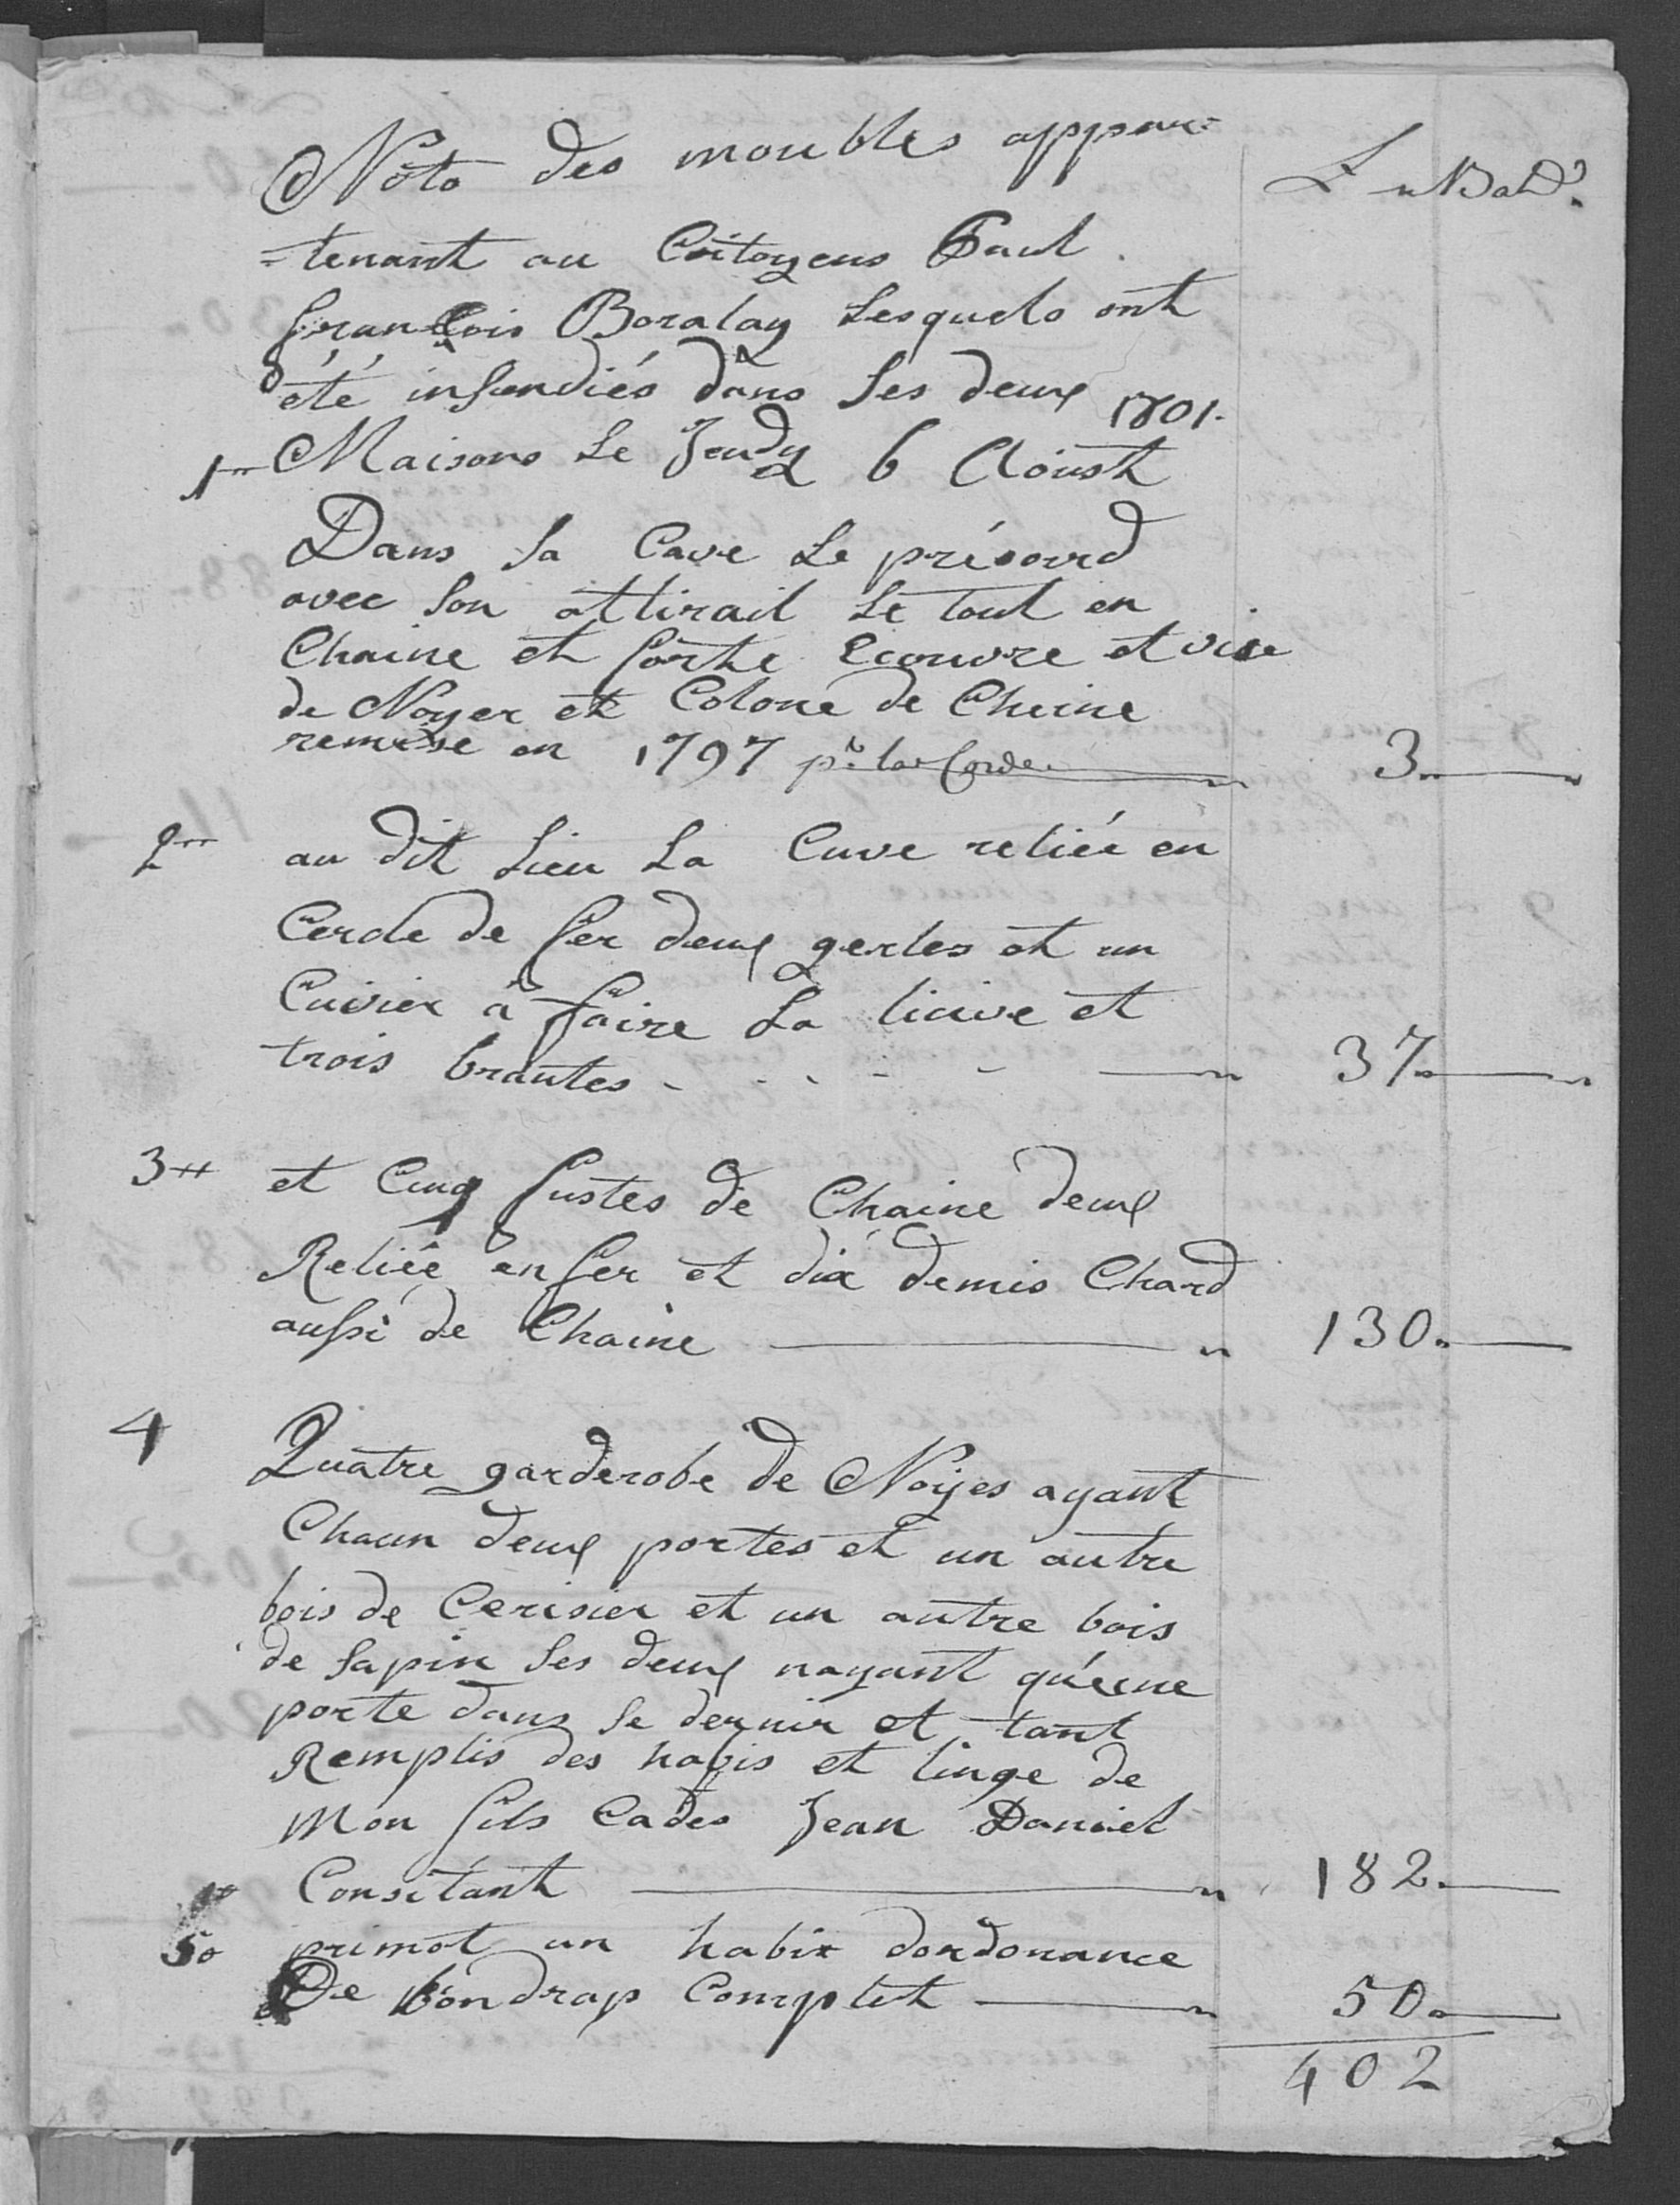 Note des moubles appar=
L n Bad?
=tenant au Citoyens Paul
francois Boralay Lesquels ont
été insendiés dans Ses deux 1801.
1" Maisons Le Jeudy 6 Aoust
Dans Sa Cave Le présoird
avec Son attirail Le tout en
Chaine et forte Ecouvre et vice
de Noyer et Colone de Cheine
remise en 1797 pr. la Corde 3.
2" au dit Lieu La Cuve reliée en
Cercle de fer deux gerles et un
Cuivier à faire La licive et
trois brantes 37.
3" et Cinq fustes de Chaine deux
Reliée en fer et dix demis Chard
aussi de Chaine 130.
4 Quatre garderobe de Noyes ayant
Chacun deux portes et un autre
bois de Cerisier et un autre bois
de Sapin Ses deux nayant qu'eune
porte dans Se dernir et tant
Remplis des habis et linge de
Mon fils Cades Jean Daniel
Consitant 182.
5o primot un habit dordonance
De bon drap Complet 50.
402